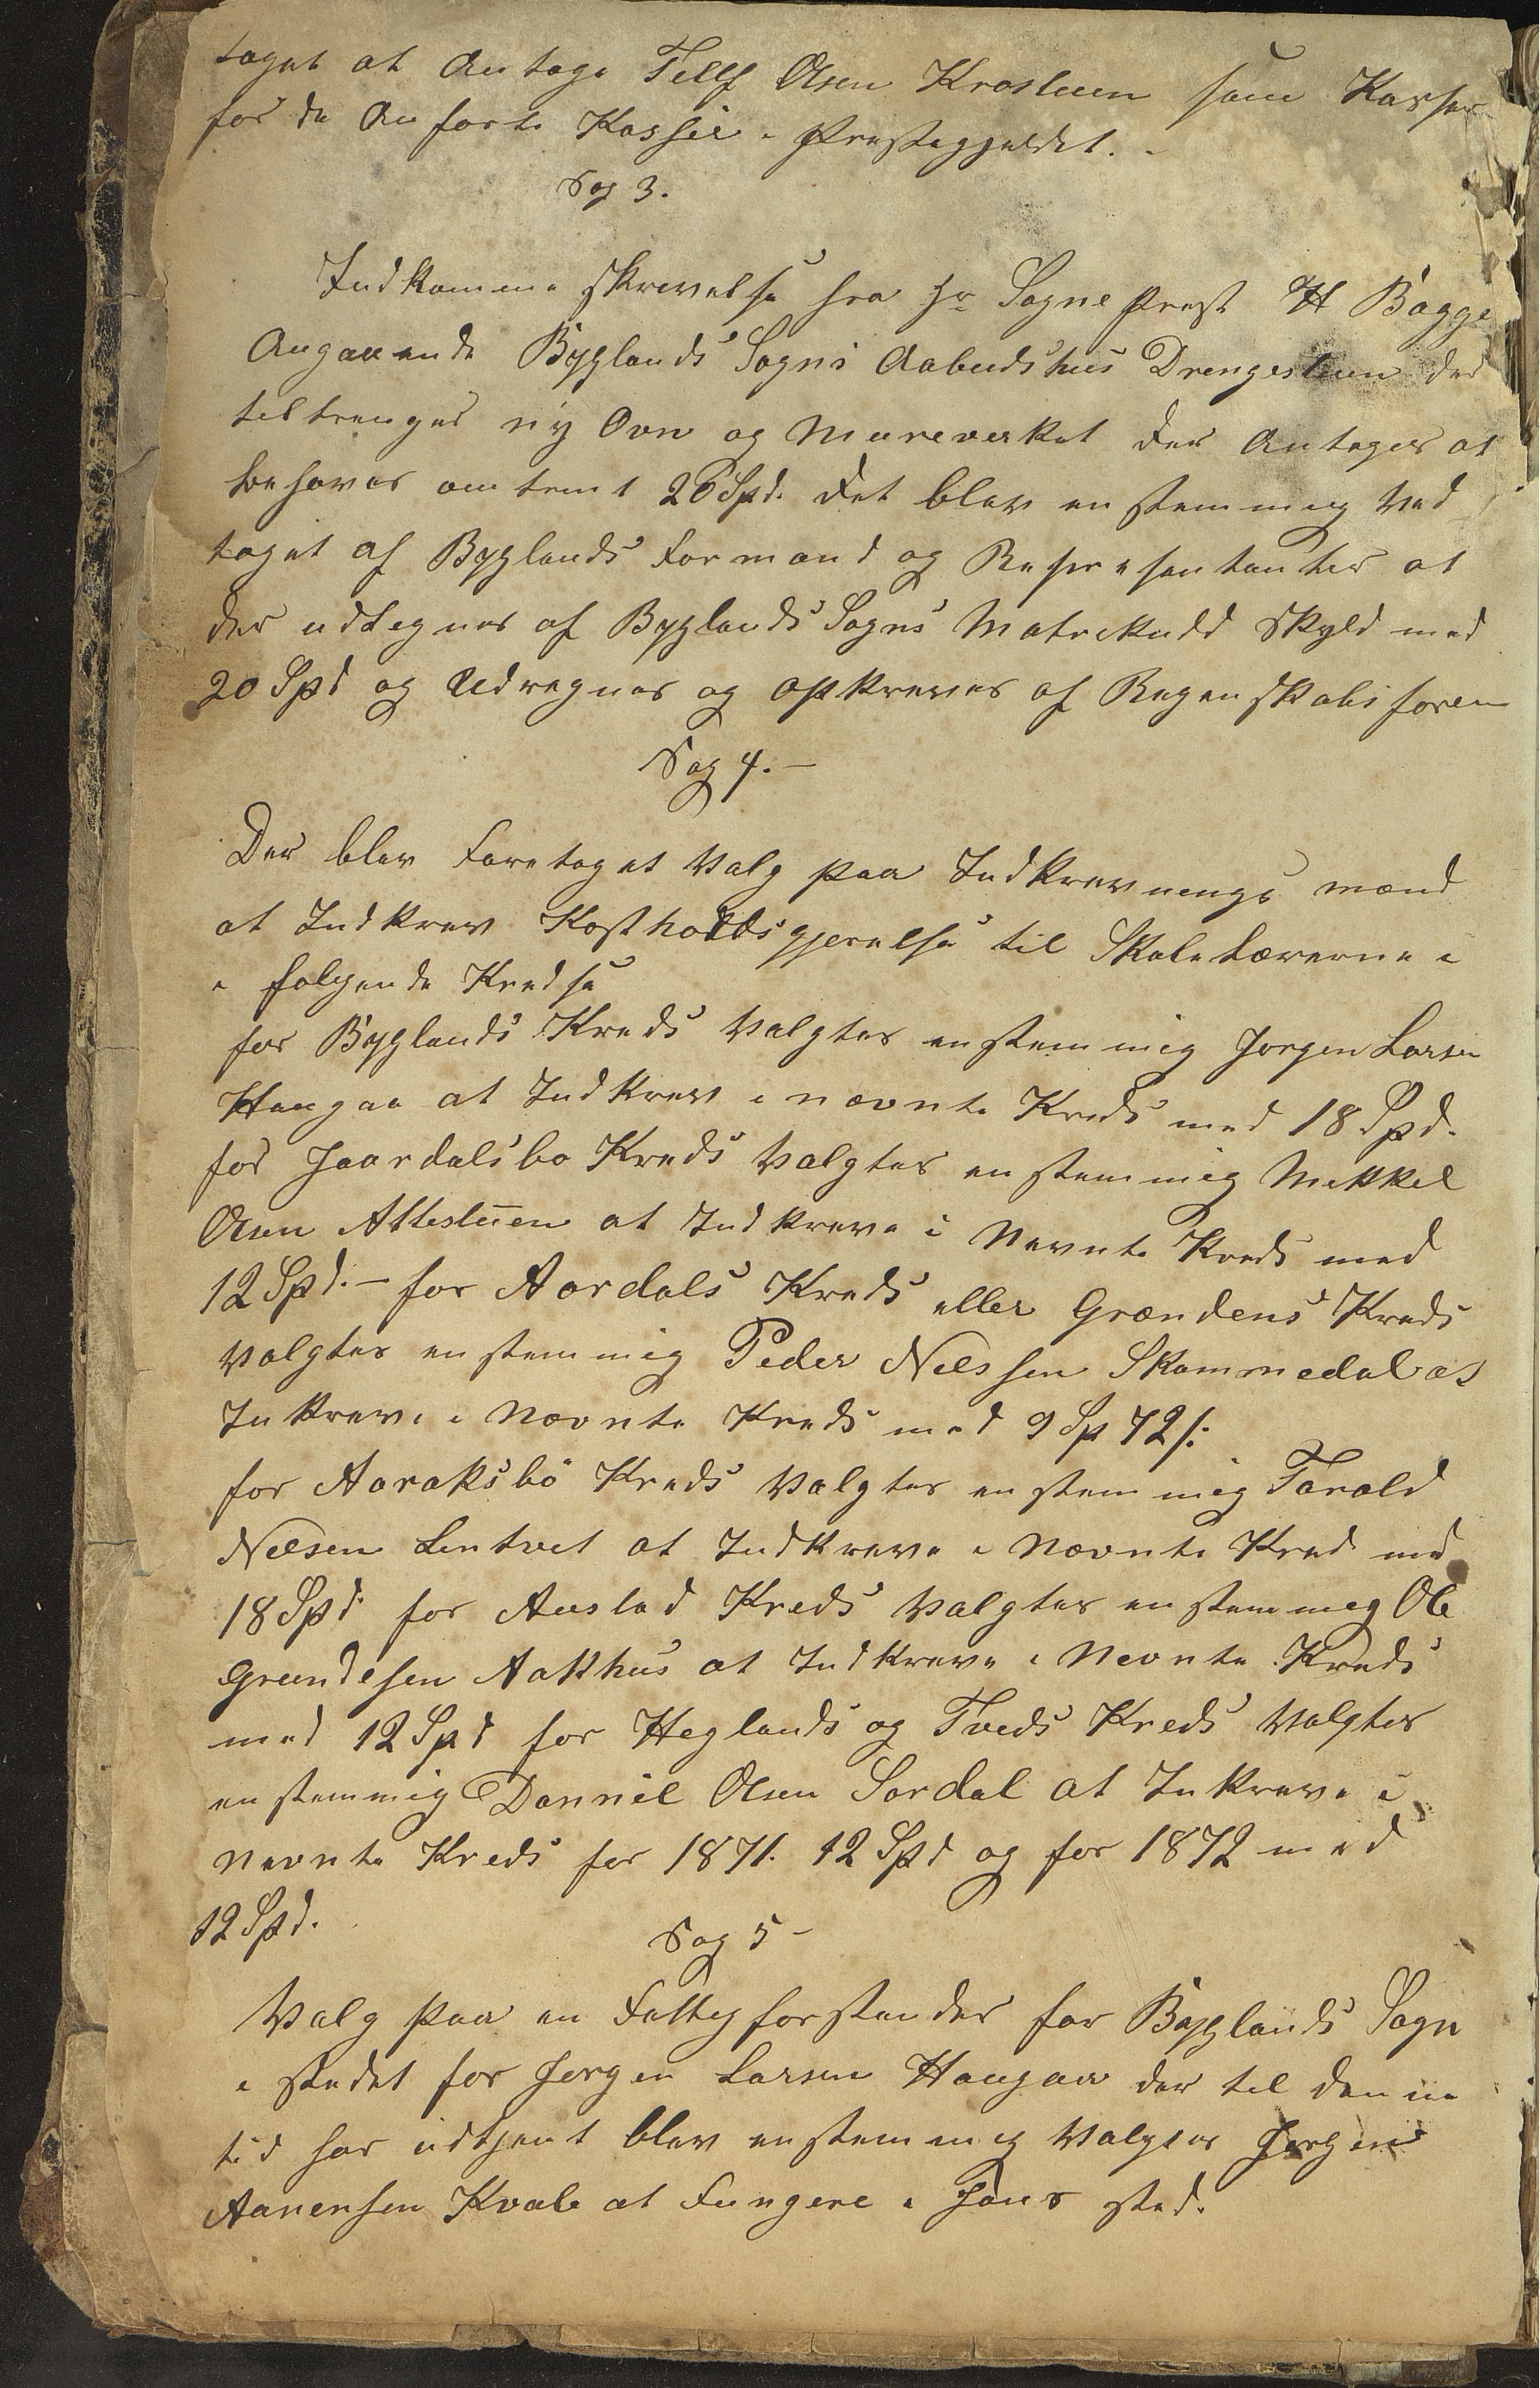 taget at Antage Tellf Olsen Krosteen som Kasser
for de Anførte Kasser i Præstegjeldet. -
Sag 3.
Indkommen Skrivelse fra Hr Sogneprest H Bagge
Angaaende Byglands Sogns Aabudshus Drengestuen der
tiltrenges ny Ovn og Mureverket der Antages at
behøves omtrent 20 Spd. det blev enstemmig Ved
taget af Byglands Formænd og Representanter at
der udlegnes af Byglands Sogns Matrikuld Skyld med
20 Spd og Udregnes og Opkreves af Regenskabsføren
Sag 4. -
Der blev Foretaget Valg paa Indkrevnengs mænd
at Indkrev Kostholdsgjørelse til Skolelærerne i
i følgende Kredse
for Byglands Kreds Valgtes enstemmig Jørgen Larsen
Haugaa at Indkrev i nævnte Kreds med 18 Spd.
for Jaardalsbø Kreds Valgtes enstemmig Mekkel
Olsen Attestuen at Indkreve i Nevnte Kreds med
12 Spd. - for Aardals Kreds eller Grændens Kreds
Valgtes enstemmig Peder Nelssen Skammedal at
Inkreve i Nævnte Kreds med 9 Sp 72 s:
for Aaraksbö Kreds Valgtes enstemmig Tarald
Nelsen Lentvet at Indkreve i Nævnte Kreds med
18 Spd for Austad Kreds Valgtes enstemmeg Ole
Grundesen Aakhus at Indkreve i Nevnte Kreds
med 12 Spd for Heglands og Tveds Kreds Valgtes
enstemmig Dannil Olsen Sordal at Inkreve i
Nevnte Kreds for 1871. 12 Spd og for 1872 med
12 Spd.
Sag 5 -
Valg paa en Fattegforstander for Byglands Sogn
i stedet for Jørgen Larsen Haugaa der til denne
tid har udtjent blev enstemmeg Valgtes Jørgen
Aanensen Kvale at Fungere i Hans sted.